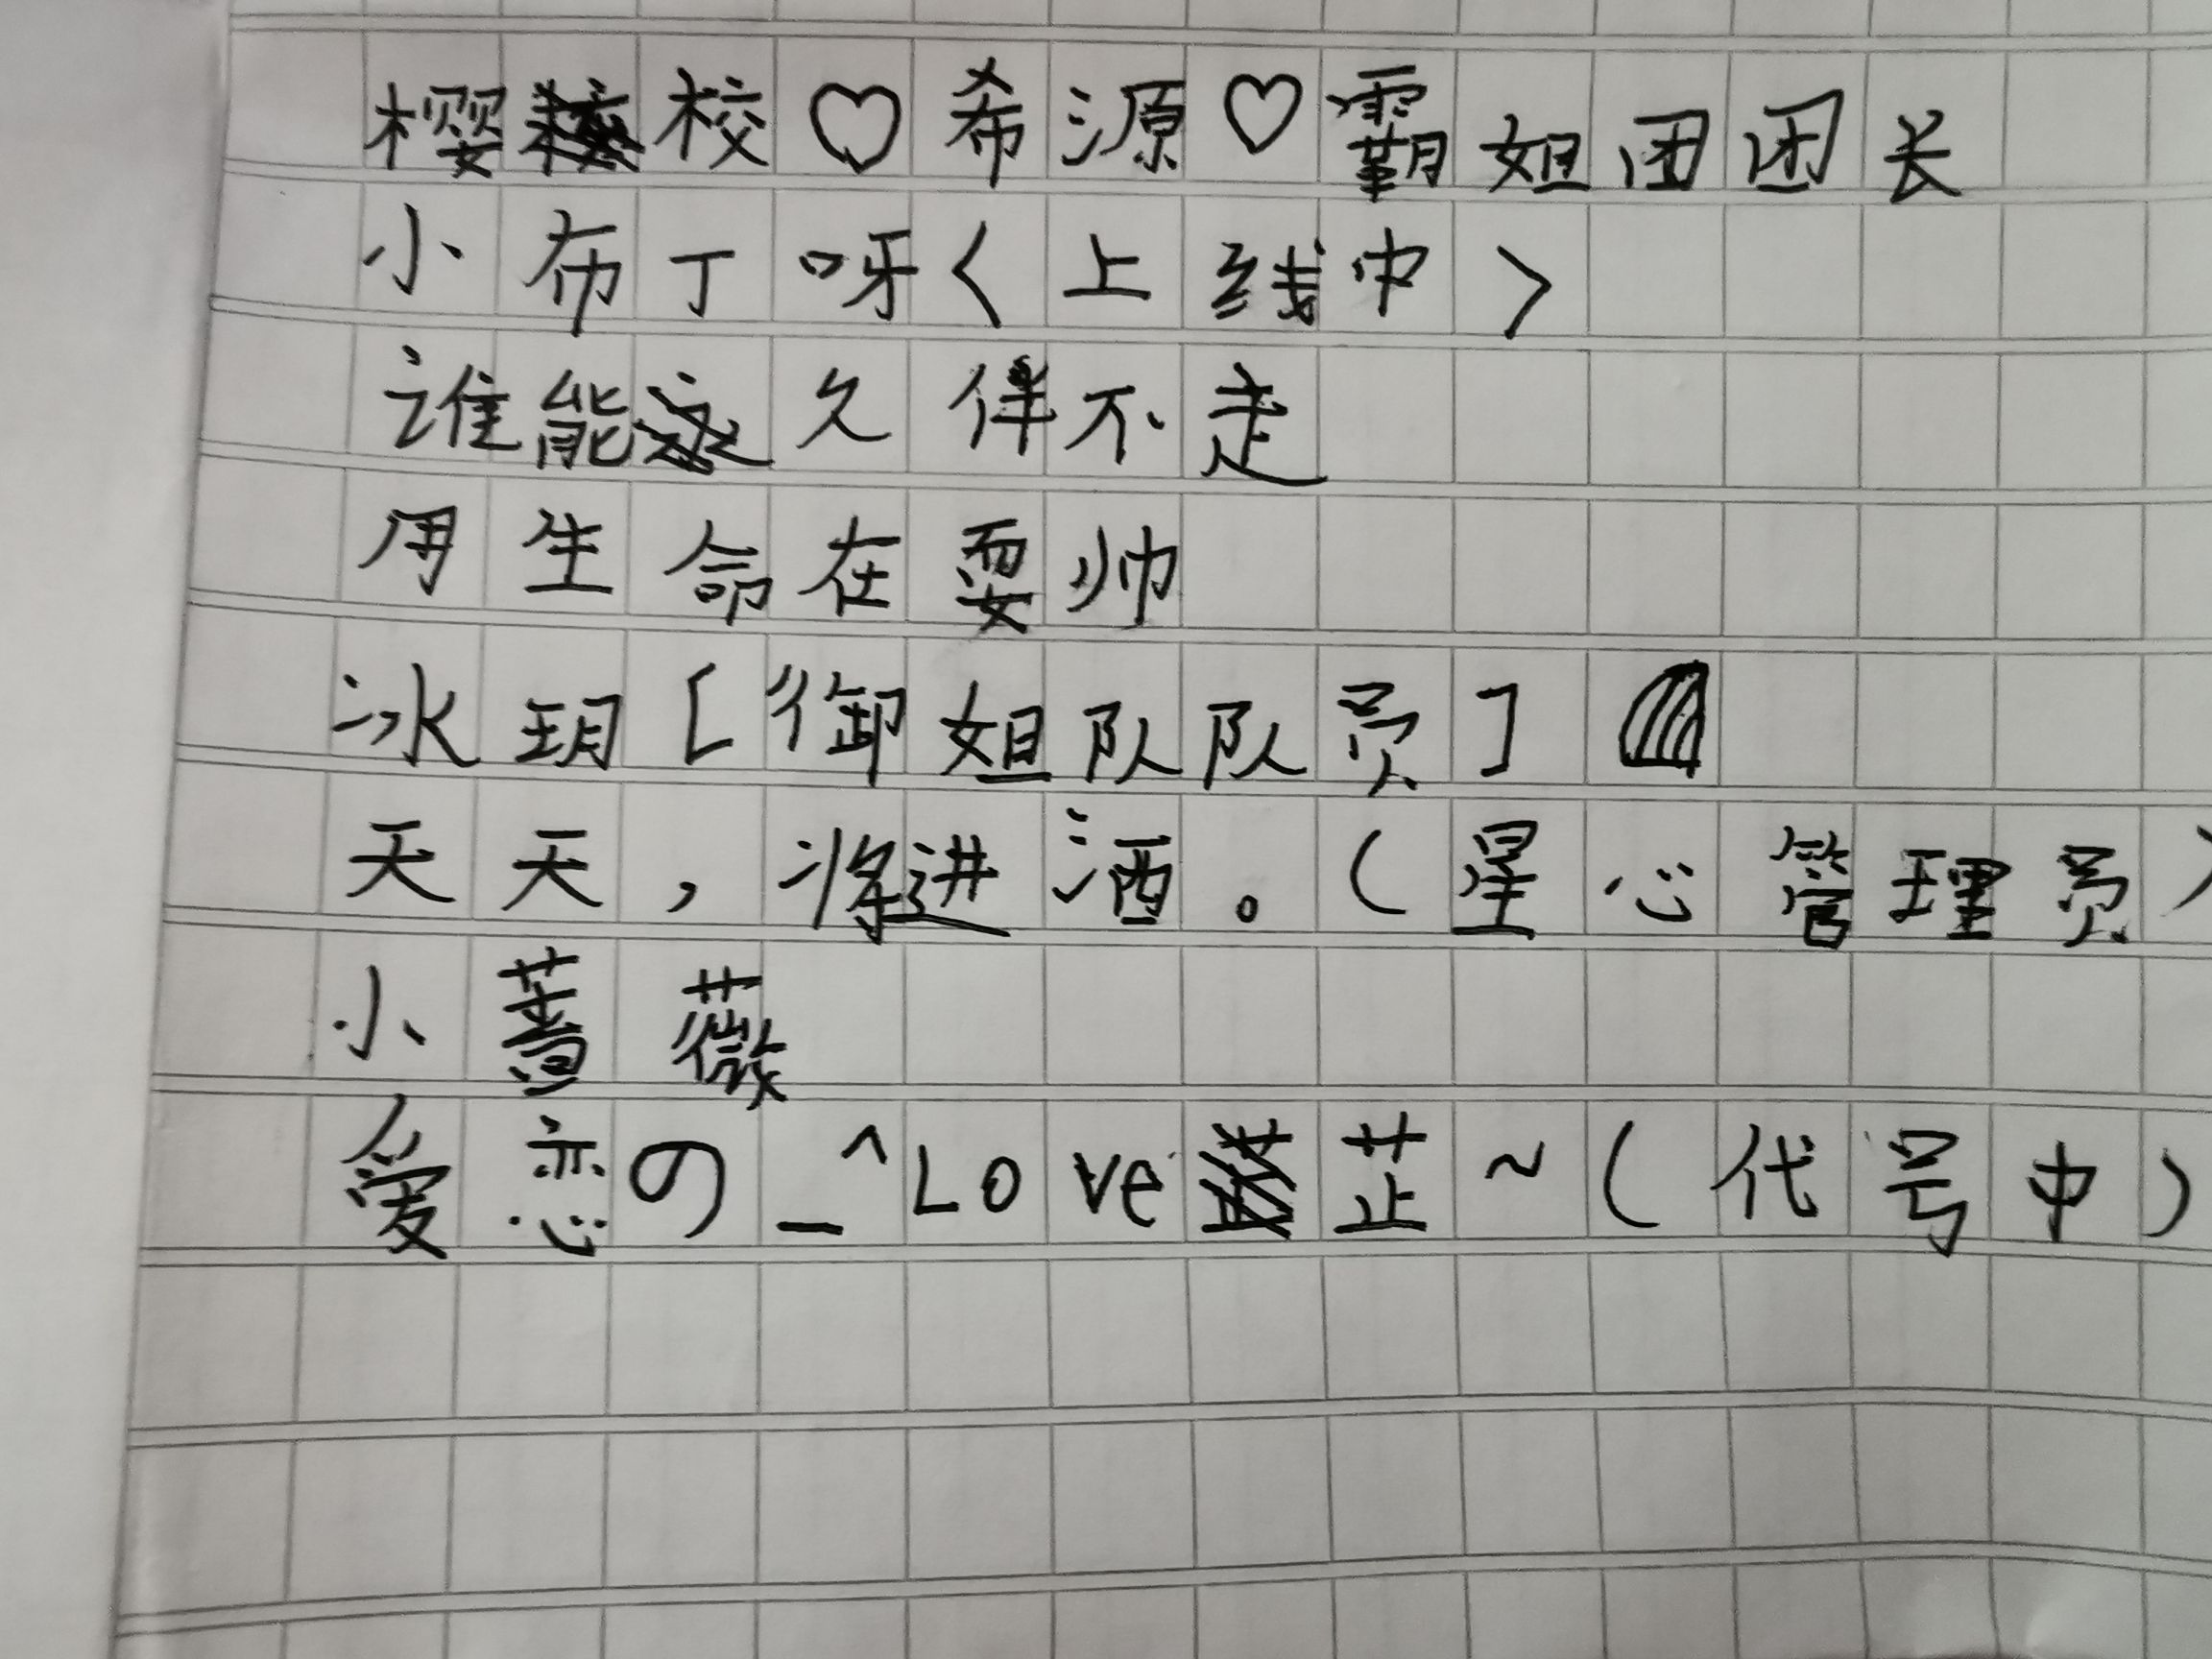 樱校♡希源♡霸姐团团长
小布丁呀〈上线中〉
谁能久伴不走
用生命在耍帅
冰玥[御姐队队员]
天天，将进酒。(星心管理员)
小蔷薇
爱恋の_^Love芷~(代号中)